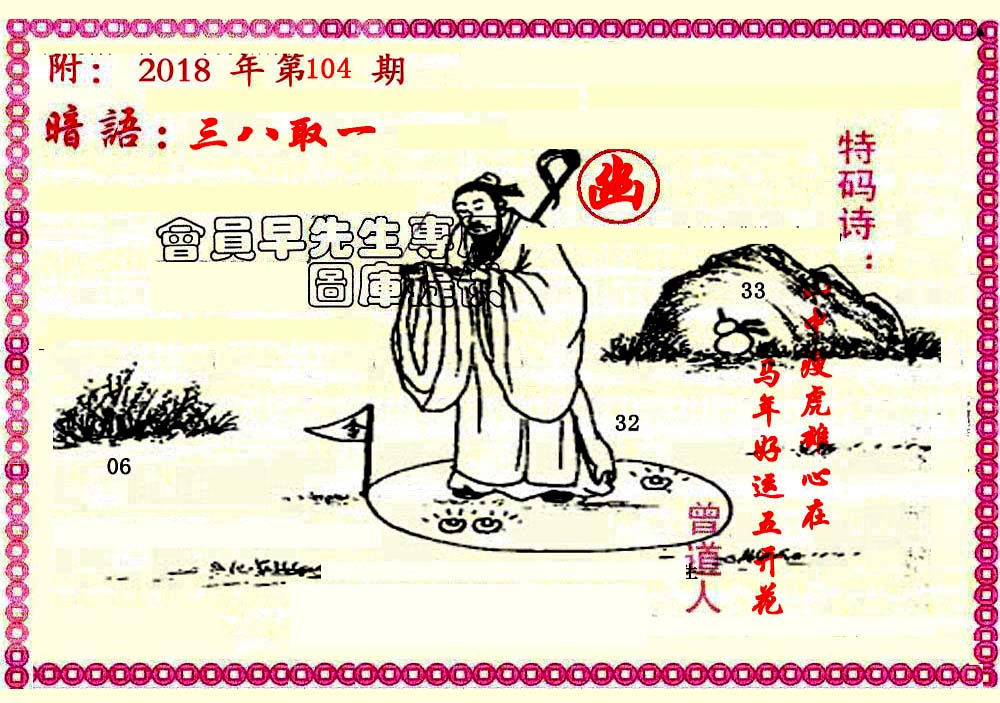 附： 2018 年 第104 期
暗語：三八取一
幽
特码诗：
會員早先生專
圖庫
33
中瘦虎雄心在
马年好运五开花
32
06
曾道人